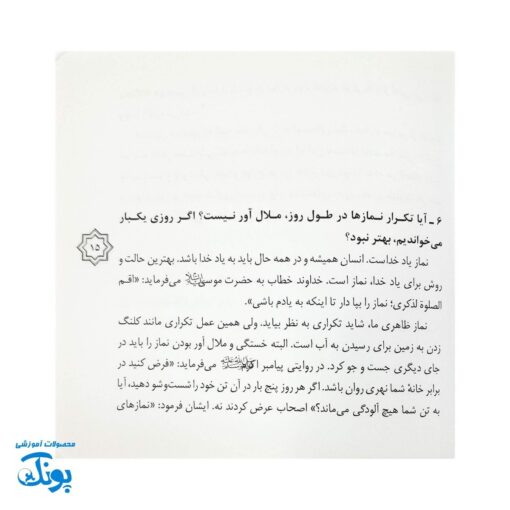 ۶ ـ آیا تکرار نمازها در طول روز، ملال آور نیست؟ اگر روزی یکبار
می‌خواندیم، بهتر نبود؟
۱۵
نماز یاد خداست. انسان همیشه و در همه حال باید به یاد خدا باشد. بهترین حالت و
روش برای یاد خدا، نماز است. خداوند خطاب به حضرت موسی می‌فرماید: «اقم
الصلوة لذکری؛ نماز را بپا دار تا اینکه به یادم باشی».
نماز ظاهری ما، شاید تکراری به نظر بیاید. ولی همین عمل تکراری مانند کلنگ
زدن به زمین برای رسیدن به آب است. البته خستگی و ملال آور بودن نماز را باید در
جای دیگری جست و جو کرد. در روایتی پیامبر اکرم می‌فرماید: «فرض کنید در
برابر خانهٔ شما نهری روان باشد. اگر هر روز پنج بار در آن تن خود را شست‌وشو دهید، آیا
به تن شما هیچ آلودگی می‌ماند؟» اصحاب عرض کردند نه. ایشان فرمود: «نمازهای
محصولات آموزشی
پونک